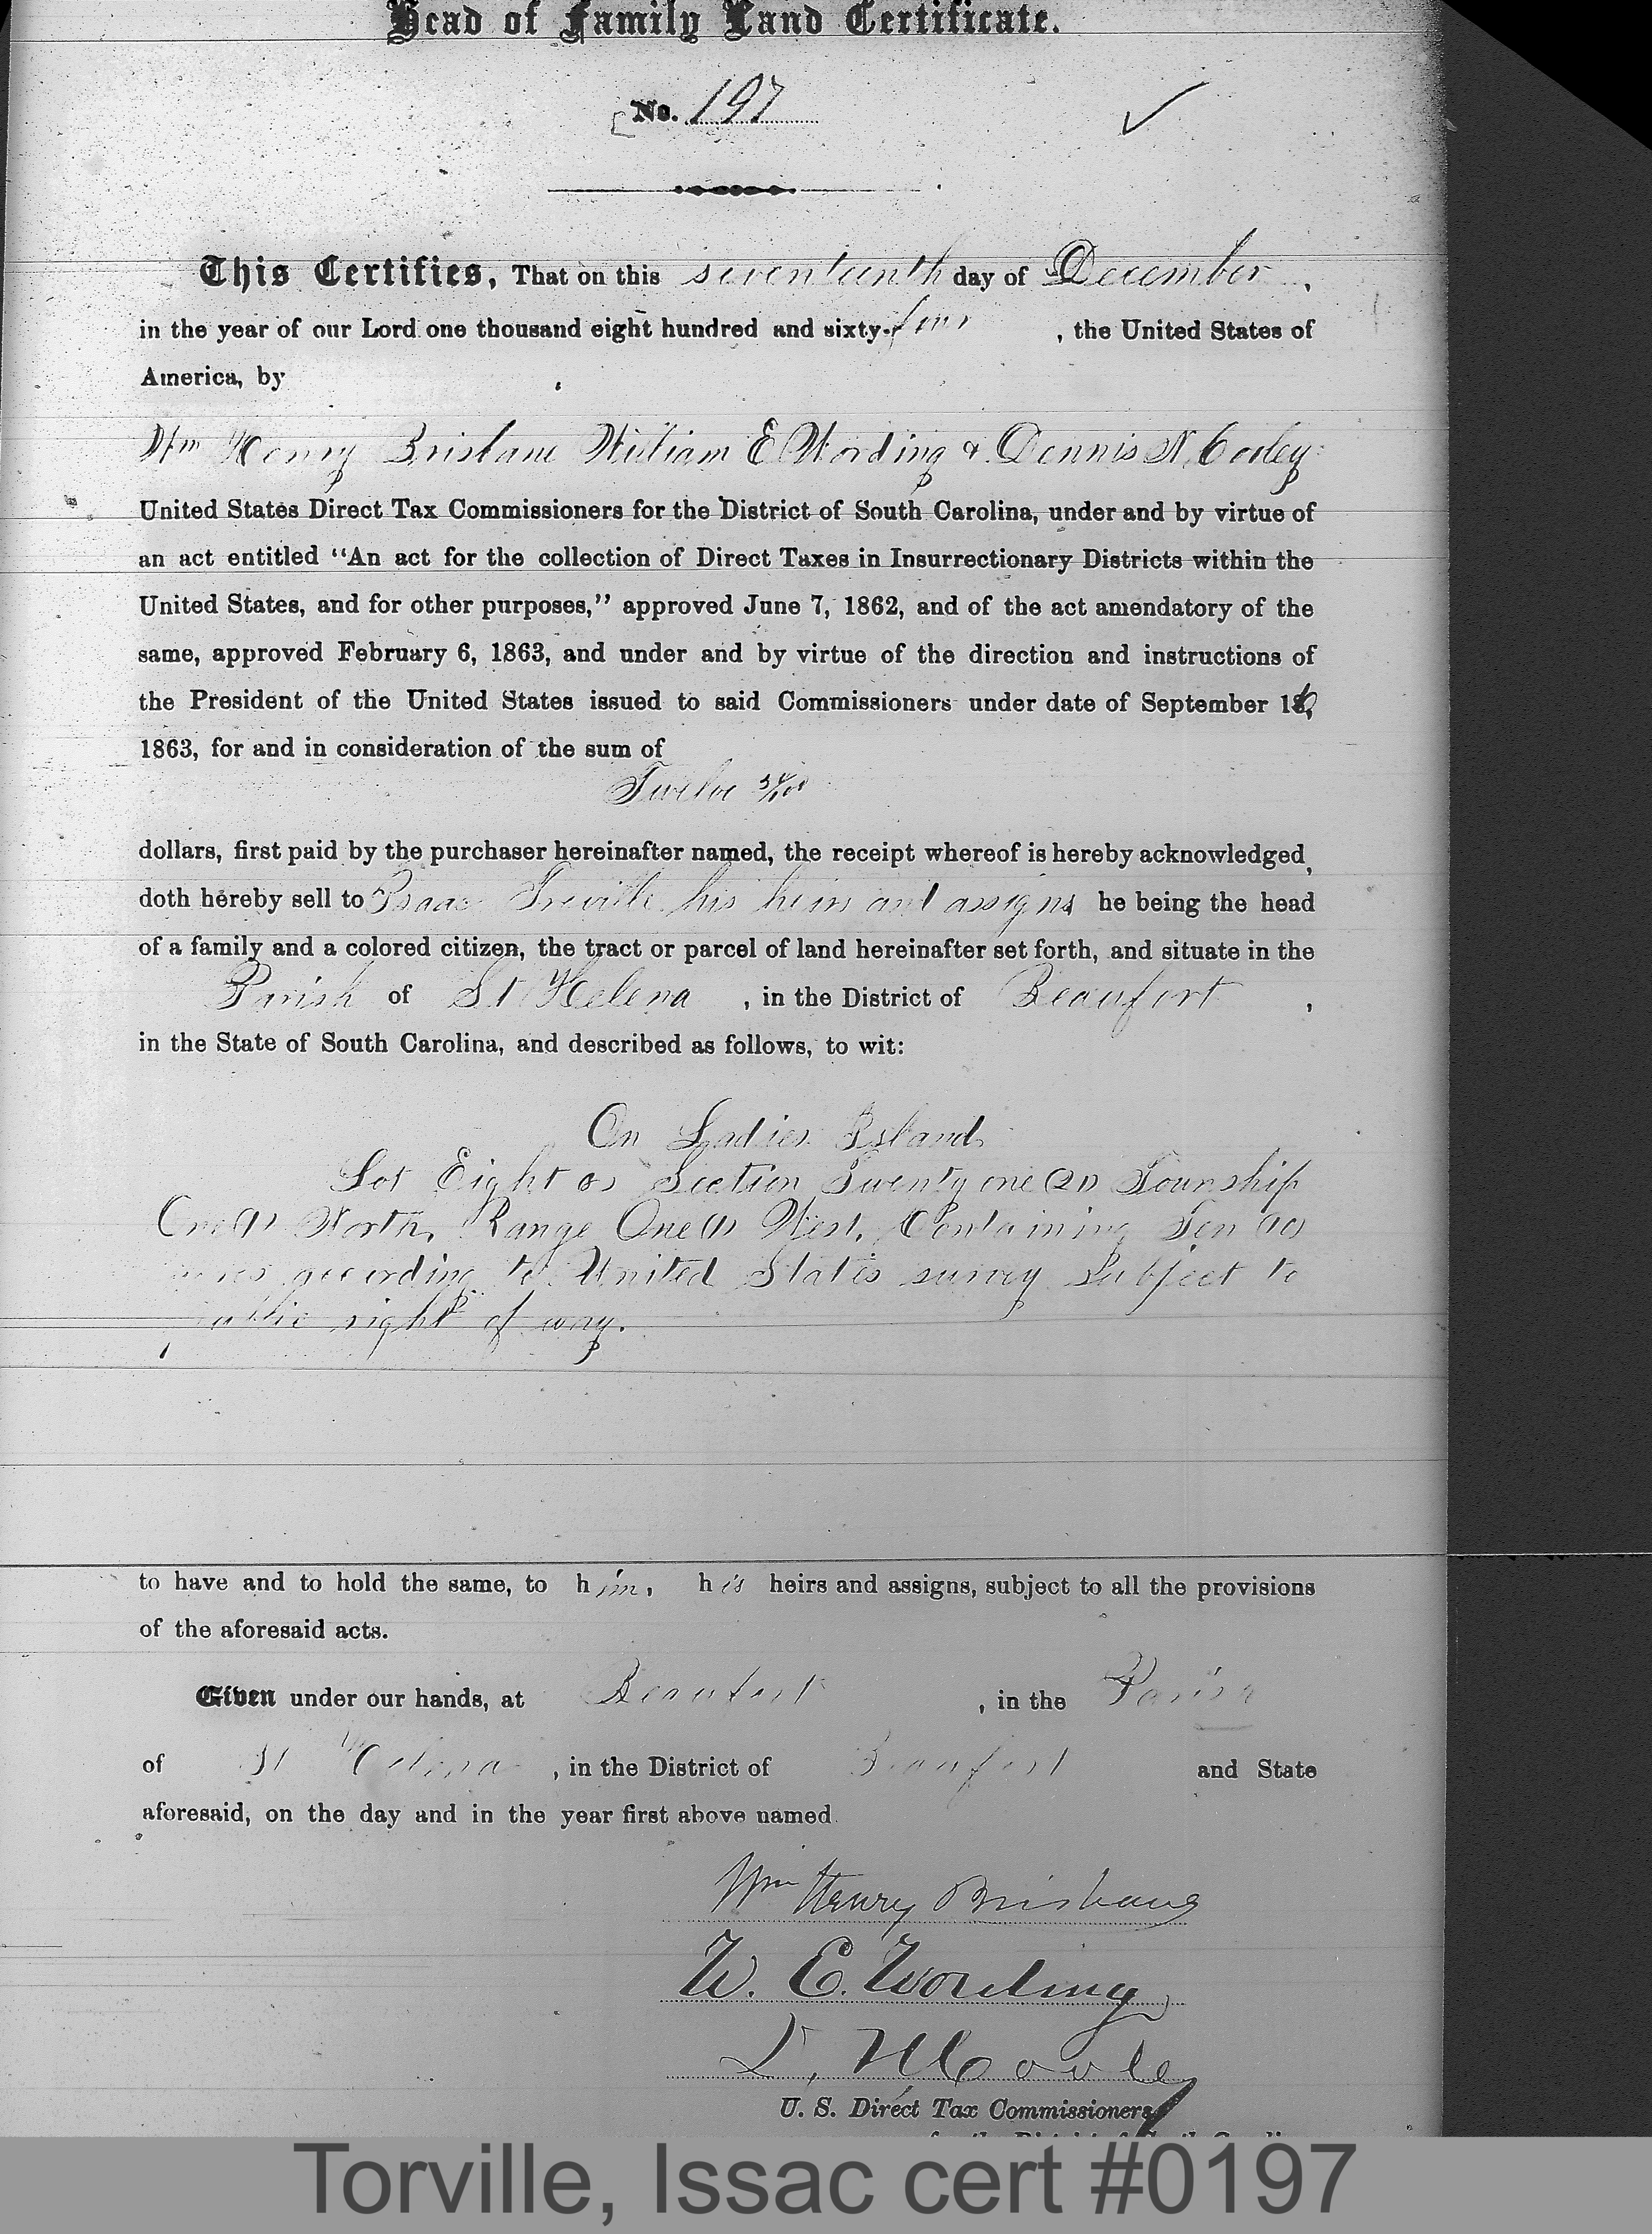 Head of Family Land Certificate.
No. 197
This Certifies, That on this seventeenth day of December,
in the year of our Lord one thousand eight hundred and sixty-four, the United States of
America, by
Wm Henry Brisbane William E Wording & Dennis N. Cooley
United States Direct Tax Commissioners for the District of South Carolina, under and by virtue of
an act entitled "An act for the collection of Direct Taxes in Insurrectionary Districts within the
United States, and for other purposes," approved June 7, 1862, and of the act amendatory of the
same, approved February 6, 1863, and under and by virtue of the direction and instructions of
the President of the United States issued to said Commissioners under date of September 16,
1863, for and in consideration of the sum of
Twelve
dollars, first paid by the purchaser hereinafter named, the receipt whereof is hereby acknowledged,
doth hereby sell to Isaac Treville his heirs and assigns he being the head
of a family and a colored citizen, the tract or parcel of land hereinafter set forth, and situate in the
Parish of St Helena, in the District of Beaufort,
in the State of South Carolina, and described as follows, to wit:
On Ladies Island
Lot Eight (8) Section Twenty one (21) Township
One (1) North, Range One (1) West, Containing Ten (10)
acres according to United States survey subject to
public right of way.
to have and to hold the same, to him, his heirs and assigns, subject to all the provisions
of the aforesaid acts.
Given under our hands, at Beaufort, in the Parish
of St Helena, in the District of Beaufort and State
aforesaid, on the day and in the year first above named.
Wm Henry Brisbane
W. E. Wording
D. N. Cooley
U. S. Direct Tax Commissioners
Torville, Issac cert #0197